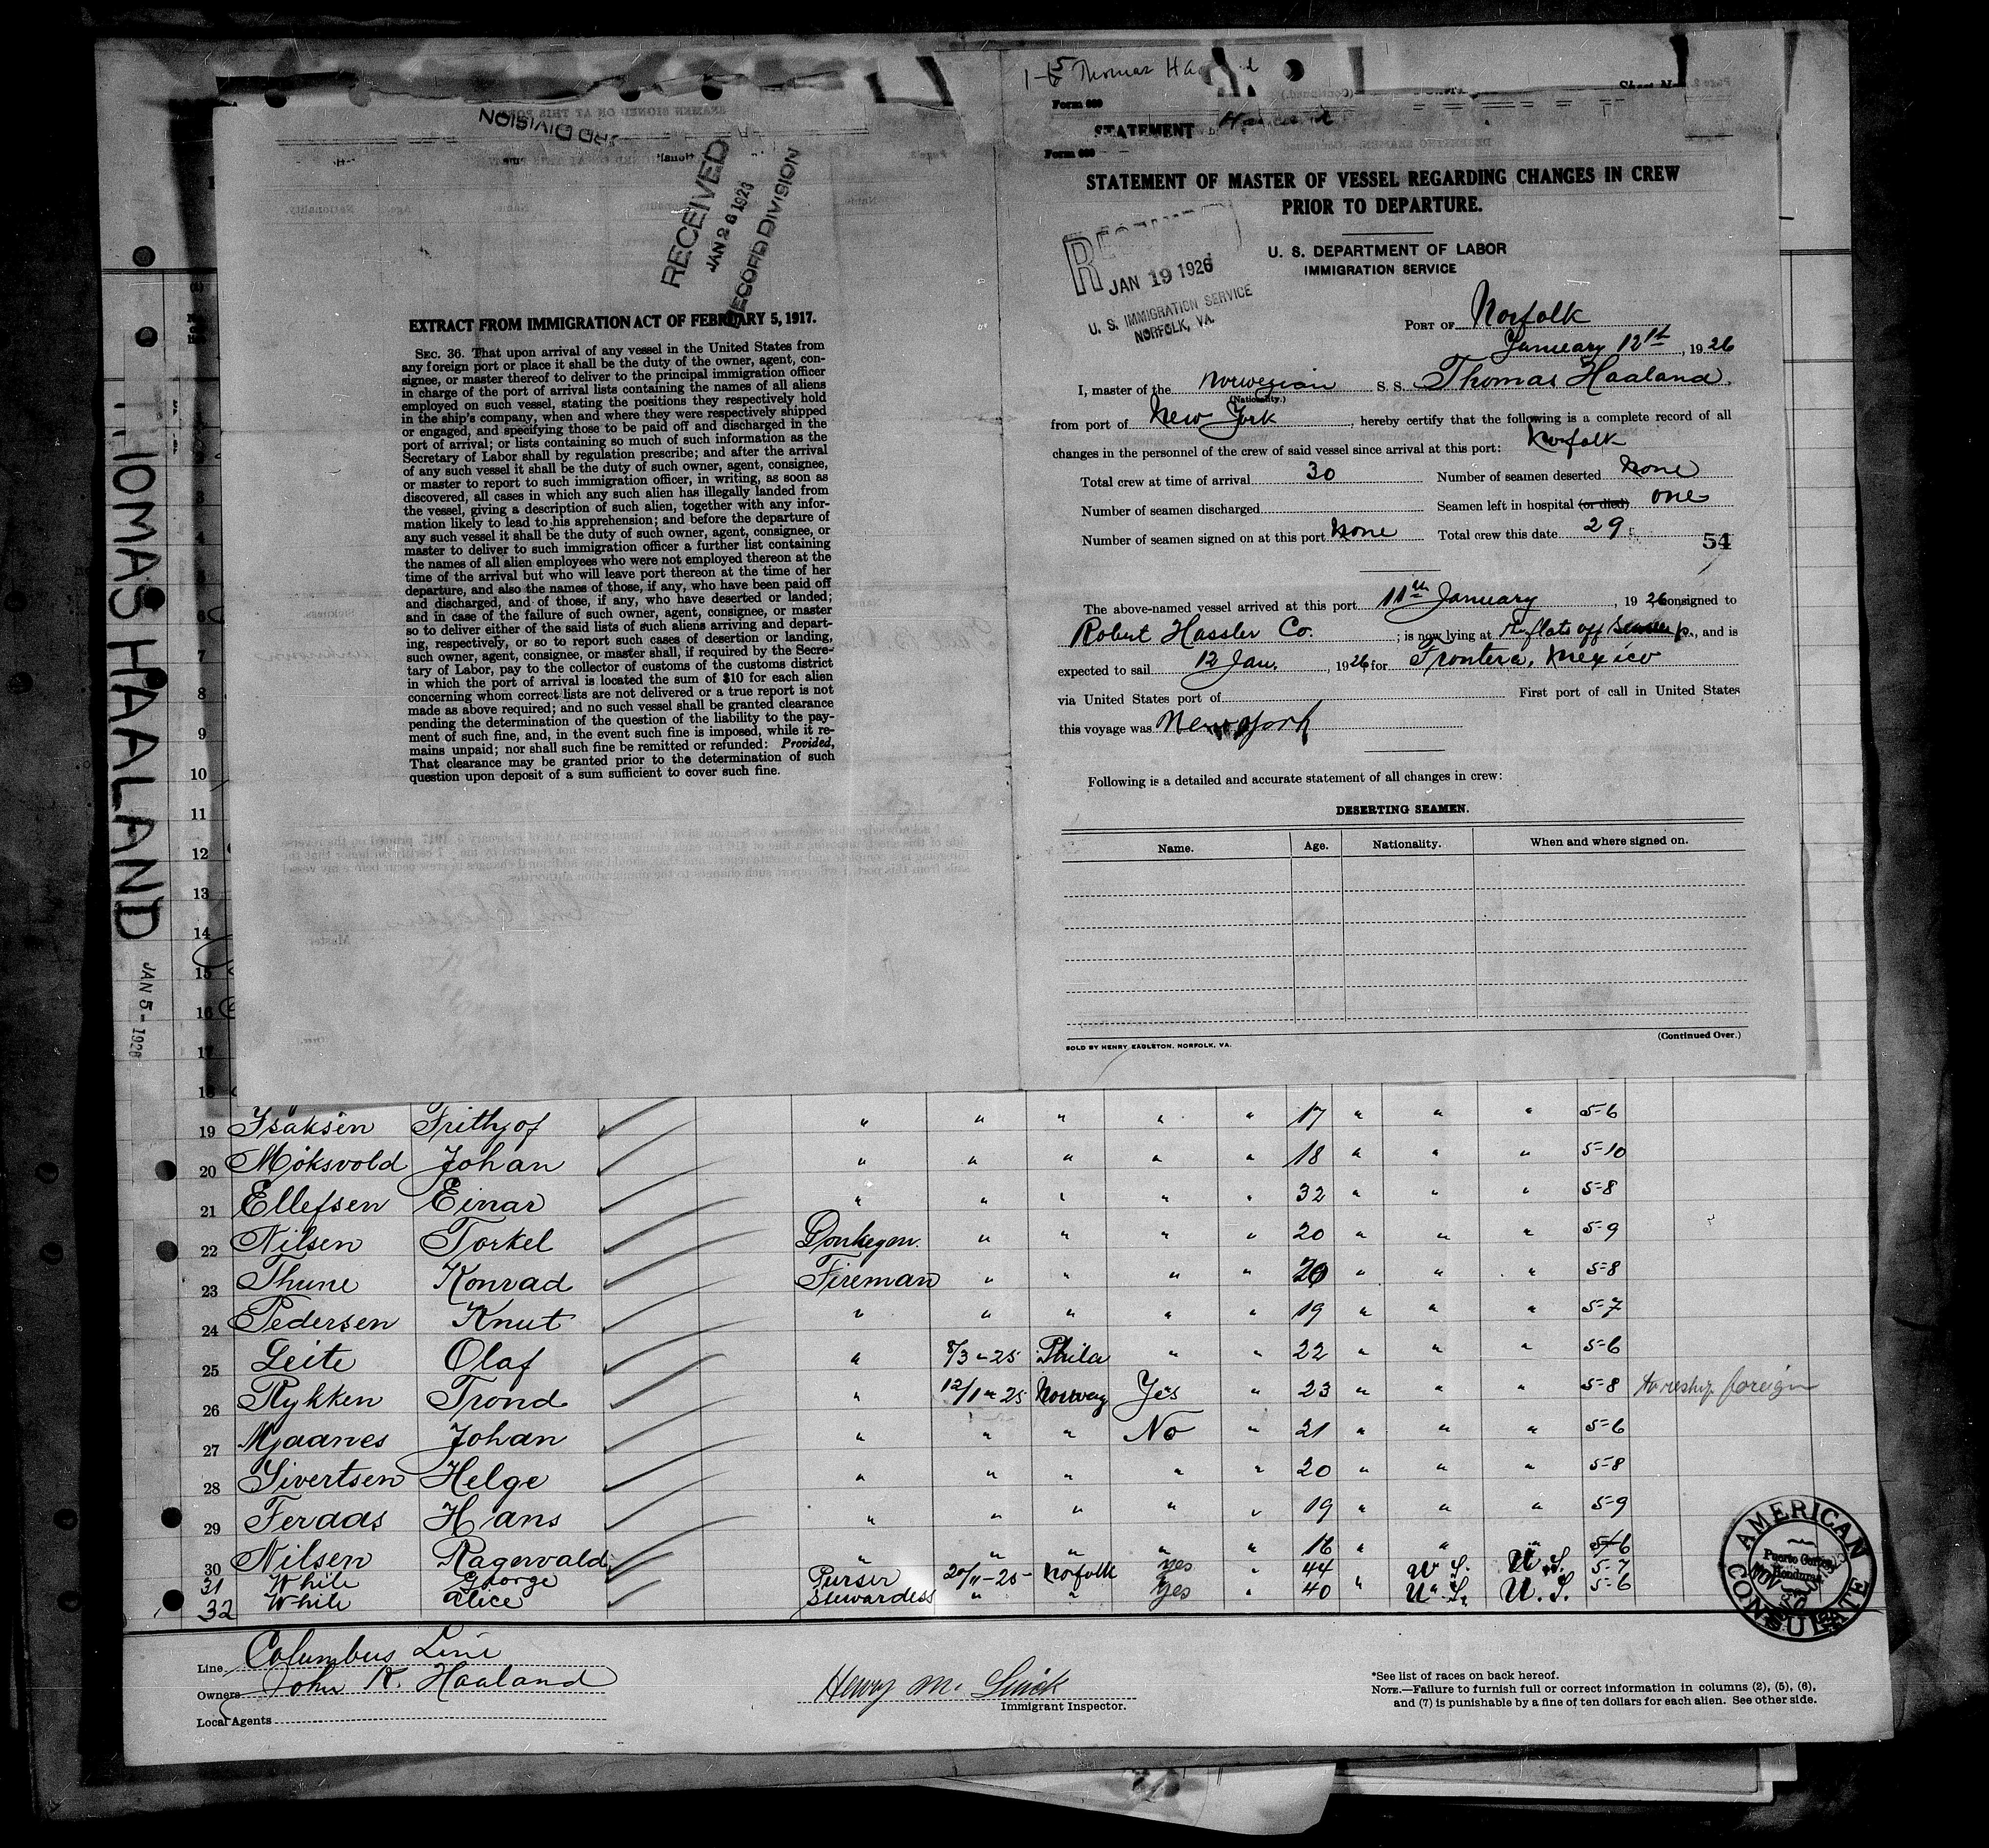 THOMAS HAALAND
JAN 5 - 1926
RECEIVED
JAN 26 1926
RECORD DIVISION
EXTRACT FROM IMMIGRATION ACT OF FEBRUARY 5, 1917.
SEC. 36. That upon arrival of any vessel in the United States from
any foreign port or place it shall be the duty of the owner, agent, con-
signee, or master thereof to deliver to the principal immigration officer
in charge of the port of arrival lists containing the names of all aliens
employed on such vessel, stating the positions they respectively hold
in the ship's company, when and where they were respectively shipped
or engaged, and specifying those to be paid off and discharged in the
port of arrival; or lists containing so much of such information as the
Secretary of Labor shall by regulation prescribe; and after the arrival
of any such vessel it shall be the duty of such owner, agent, consignee,
or master to report to such immigration officer, in writing, as soon as
discovered, all cases in which any such alien has illegally landed from
the vessel, giving a description of such alien, together with any infor-
mation likely to lead to his apprehension; and before the departure of
any such vessel it shall be the duty of such owner, agent, consignee, or
master to deliver to such immigration officer a further list containing
the names of all alien employees who were not employed thereon at the
time of the arrival but who will leave port thereon at the time of her
departure, and also the names of those, if any, who have been paid off
and discharged, and of those, if any, who have deserted or landed;
and in case of the failure of such owner, agent, consignee, or master
so to deliver either of the said lists of such aliens arriving and depart-
ing, respectively, or so to report such cases of desertion or landing,
such owner, agent, consignee, or master shall, if required by the Secre-
tary of Labor, pay to the collector of customs of the customs district
in which the port of arrival is located the sum of $10 for each alien
concerning whom correct lists are not delivered or a true report is not
made as above required; and no such vessel shall be granted clearance
pending the determination of the question of the liability to the pay-
ment of such fine, and, in the event such fine is imposed, while it re-
mains unpaid; nor shall such fine be remitted or refunded: Provided,
That clearance may be granted prior to the determination of such
question upon deposit of a sum sufficient to cover such fine.
Thomas
Form 680
STATEMENT
Form 680
STATEMENT OF MASTER OF VESSEL REGARDING CHANGES IN CREW
PRIOR TO DEPARTURE.
U. S. DEPARTMENT OF LABOR
IMMIGRATION SERVICE
JAN 19 1926
U. S. IMMIGRATION SERVICE
NORFOLK, VA.
PORT OF Norfolk
January 12th, 1926
I, master of the Norwegian S. S. Thomas Haaland.
(Nationality.)
from port of New York, hereby certify that the following is a complete record of all
changes in the personnel of the crew of said vessel since arrival at this port: Norfolk
Total crew at time of arrival 30 Number of seamen deserted None
Number of seamen discharged Seamen left in hospital (or died) one
Number of seamen signed on at this port None Total crew this date 29
54
The above-named vessel arrived at this port 11th January, 1926 consigned to
Robert Hassler Co.; is now lying at flats off, and is
expected to sail 12 Jan., 1926 for Frontera, Mexico
via United States port of First port of call in United States
this voyage was New York
Following is a detailed and accurate statement of all changes in crew:
DESERTING SEAMEN.
Name. Age. Nationality. When and where signed on.
SOLD BY HENRY EAGLETON, NORFOLK, VA.
(Continued Over.)
3
4
5
6
7
8
9
10
11
12
13
14
15
16
17
18
19 Isaksen Frithjof " " " " " 17 " " " 5-6
20 Moksvold Johan " " " " " 18 " " " 5-10
21 Ellefsen Einar " " " " " 32 " " " 5-8
22 Nilsen Torkel Donkeyan. " " " " 20 " " " 5-9
23 Thune Konrad Fireman " " " " 20 " " " 5-8
24 Pedersen Knut " " " " " 19 " " " 5-7
25 Leite Olaf " 8/3-25 Phila " " 22 " " " 5-6
26 Rykken Trond " 12/1-25 Norway Yes " 23 " " " 5-8 to reship foreign
27 Mjaanes Johan " " " No " 21 " " " 5-6
28 Sivertsen Helge " " " " " 20 " " " 5-8
29 Feraas Hans " " " " " 19 " " " 5-9
30 Nilsen Ragnvald " " " " " 18 " " " 5-6
31 White George Purser 20/11-25- Norfolk yes " 44 U.S. U.S. 5-7
32 White Alice Stewardess " " yes " 40 " U.S. U.S. 5-6
AMERICAN CONSULATE
Puerto Cortes
Honduras
Line Columbus Line
Owners John K. Haaland
Local Agents
Henry M.
Immigrant Inspector.
*See list of races on back hereof.
NOTE.—Failure to furnish full or correct information in columns (2), (5), (6),
and (7) is punishable by a fine of ten dollars for each alien. See other side.